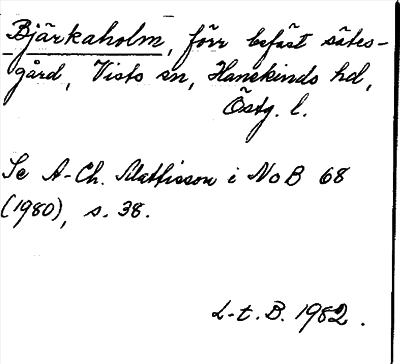 Bjärkaholm, förr befäst sätes-
gård, Vists sn, Hanekinds hd,
Östg. l.
Se A-Ch. Mattisson i NoB 68
(1980), s. 38.
L-t. B. 1982.